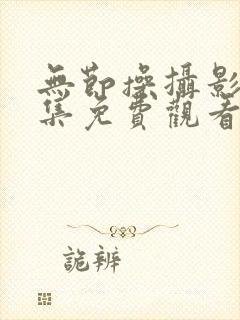 無節操攝影
集免費觀看
詭辨